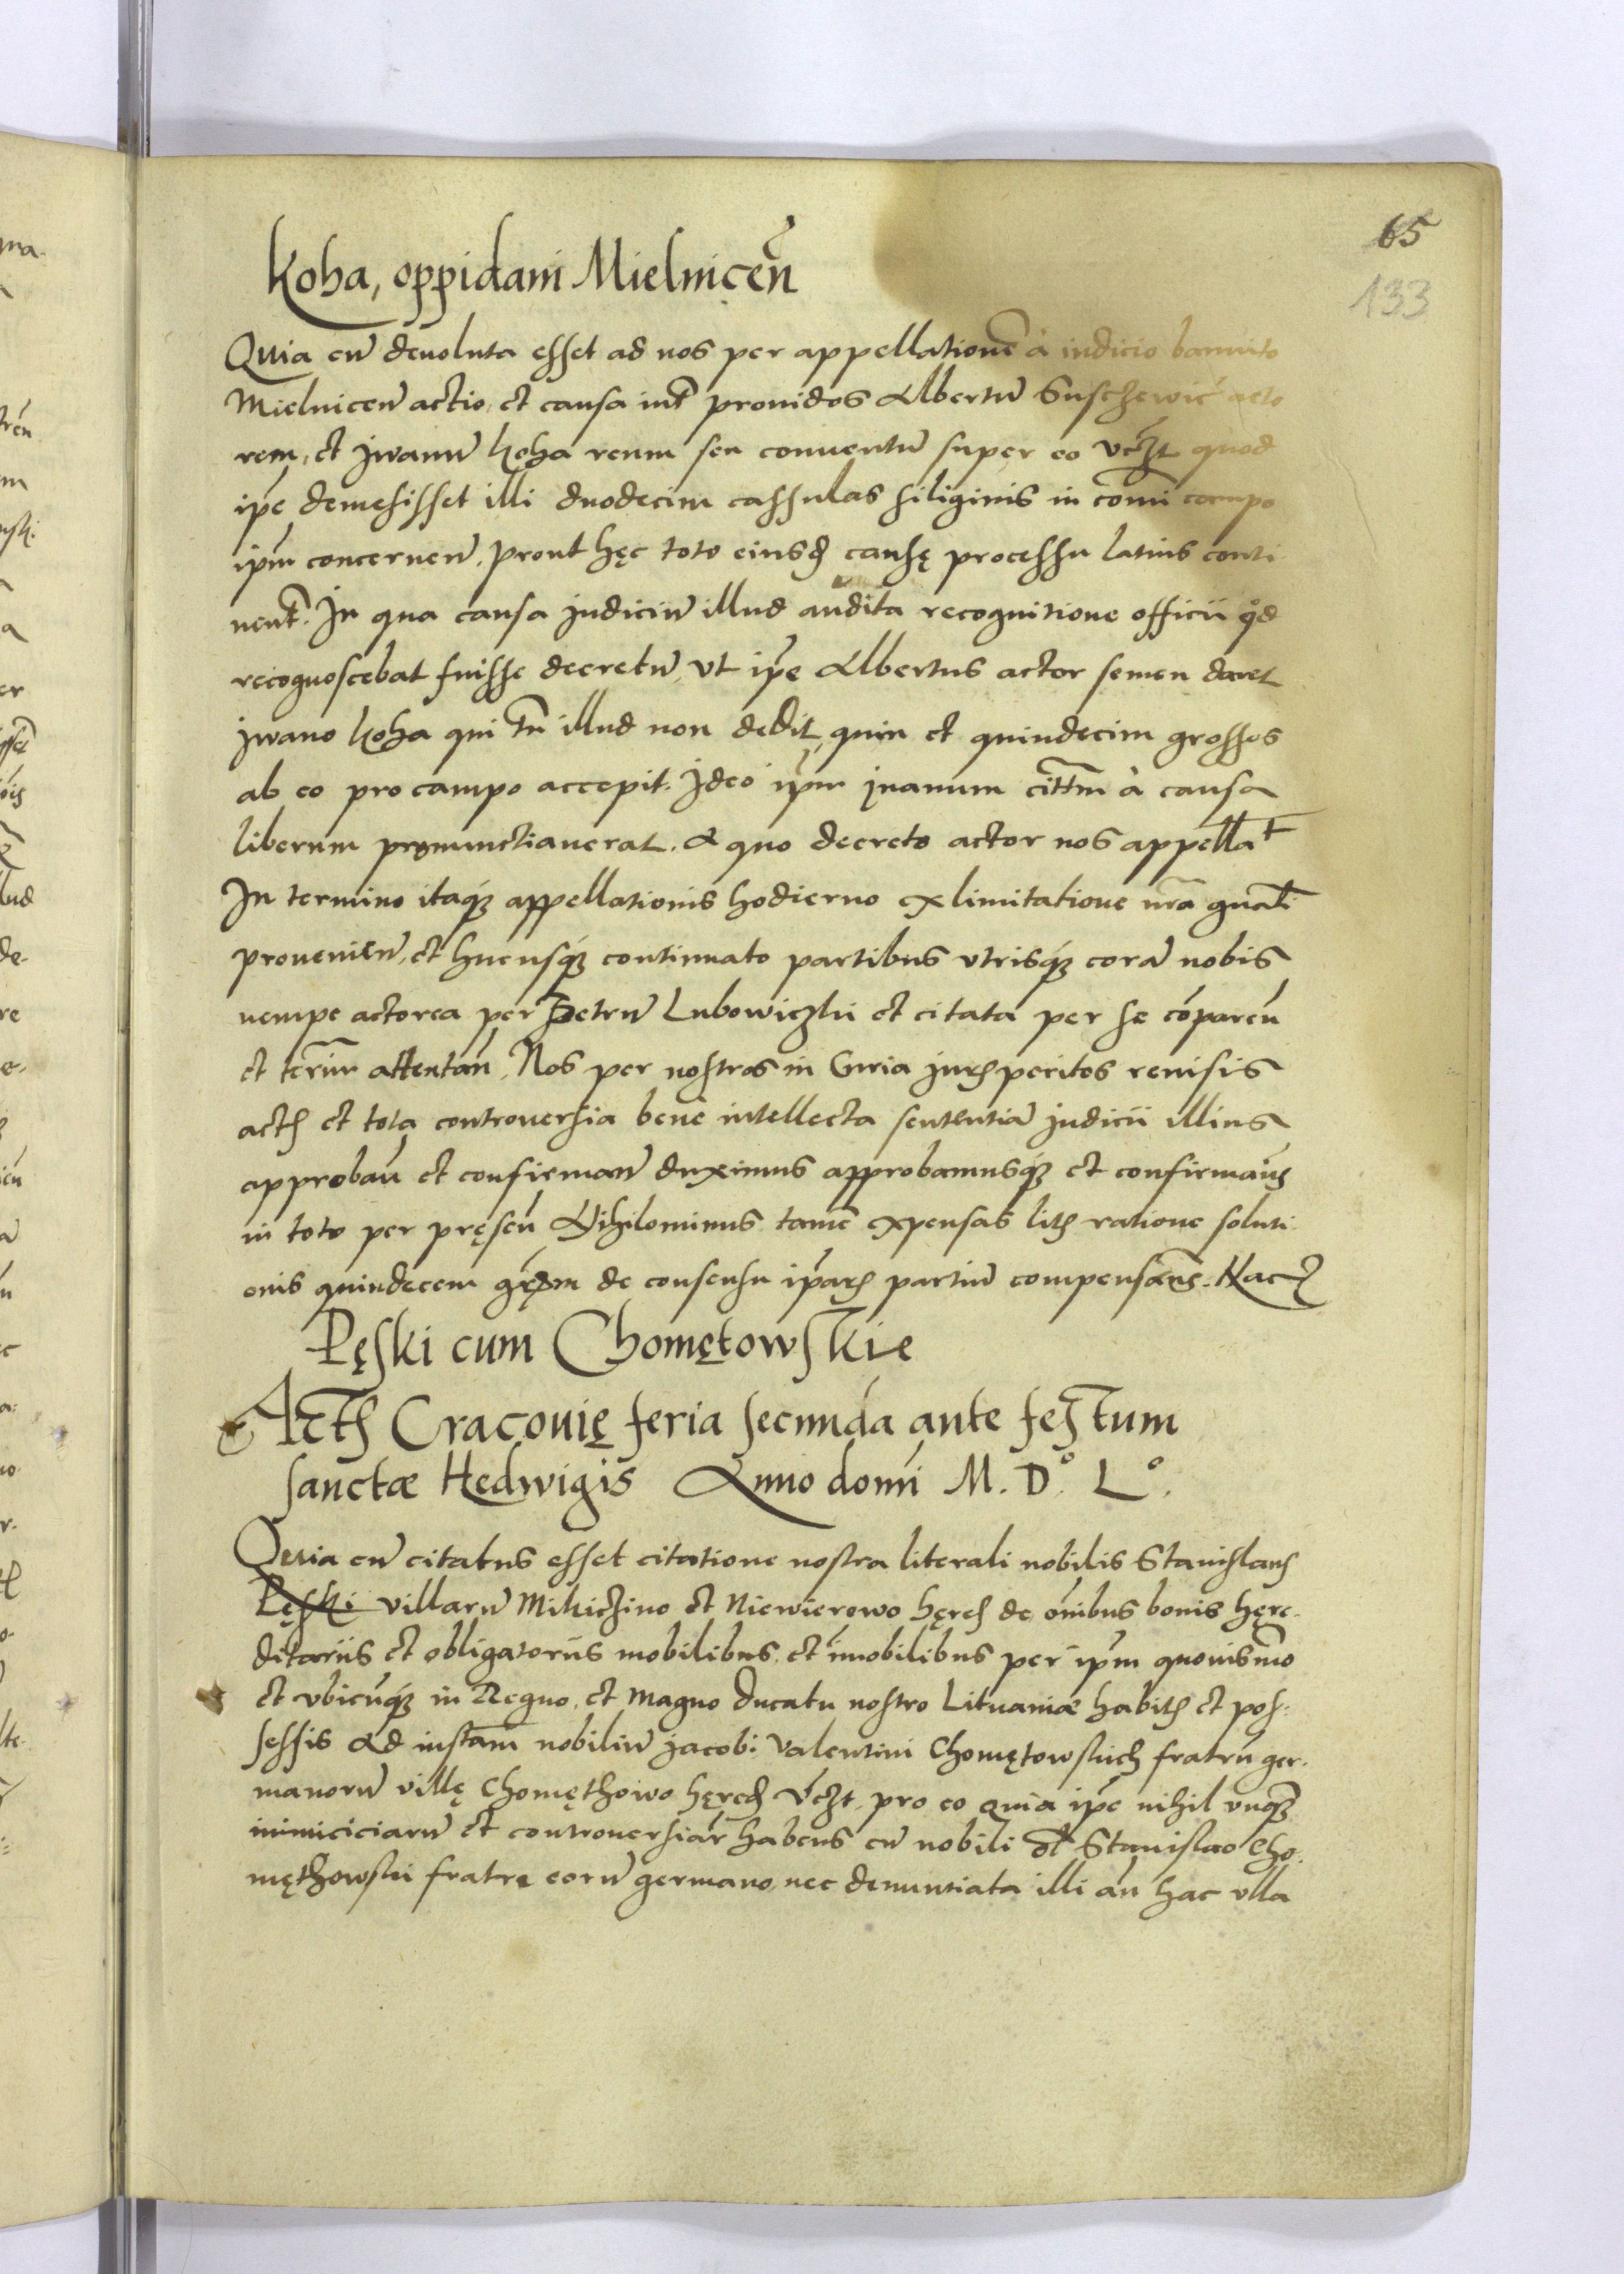 65
133
Koha, oppidani Mielnicen̄
Quia cū deuoluta esset ad nos per appellationē à iudicio bannito
Mielnicen̄ actio, et causa int̄ prouidos Albertū Suschewic̄ acto
rem, et Jwanū Koha reum seu conuentū super eo vcz̄t quod
ip̄e demesisset illi duodecim cassulas siliginis in com̄i campo
ip̄m concernen̄, prout hęc toto eiusd̄ causę processu latius conti
nent̄. In qua causa judiciū illud audita recognitione officii qd̄
recognoscebat fuisse decretū, vt ip̄e Albertus actor semen daret
Jwano Koha qui tn̄ illud non dedit, quin et quindecim grossos
ab eo pro campo accepit. Ideo ip̄m jvanum citt̄m à causa
liberum pronunctiauerat. A quo decreto actor nos appellat̄
In termino itaq̄ appellationis hodierno ex limitatione nr̄a gnāli
prouenien̄, et hucusq̄ continuato partibus vtrisq̄ corā nobis
nempe actorea per Petrū Lubowiczki et citata per se cōparen̄
et term̄ attentan̄, Nos per nostros in Curia jur̄peritos reuisis
actꝭ et tota controuersia bene intellecta sententiā judicii illius
approban̄ et confirman̄ duximus approbamusq̄ et confirmam̄
in toto per pręsen̄ Nihilominus tamē expensas litꝭ ratione soluti
onis quindecem gr̄m de consensu ip̄arꝭ partiū compensam̄.
Pęski cum Chomętowskie
Actꝭ Cracouię feria secunda ante festum
sanctæ Hedwigis Anno domī M. D.º L.º
Quia cū citatus esset citatione nostra literali nobilis Stanislaus
Pęski villarū Mikiczino et Niewierowo hęres de om̄ibus bonis hęre-
ditariis et obligatoriis mobilibus, et īmobilibus per ip̄m quouismō
et vbicūq̄ in Regno, et Magno Ducatu nostro Lituaniæ habitꝭ et pos-
sessis Ad instam̄ nobiliū Jacobi Valentini Chomętowskich fratrū ger-
manorū villę Chomęthowo hęred̄ vcz̄t, pro eo Quia ip̄e nihil vnq̄
inimiciciarū et controuersiar̄ habens cū nobili ol̄ Stanislao Cho-
męthowski fratre eorū germano, nec denuntiata illi an̄ hac vlla